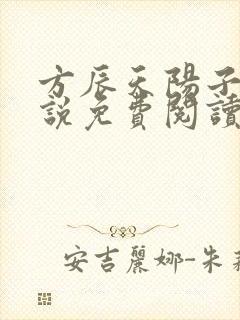 方辰天陽子
說免費閱讀
安吉麗娜-朱